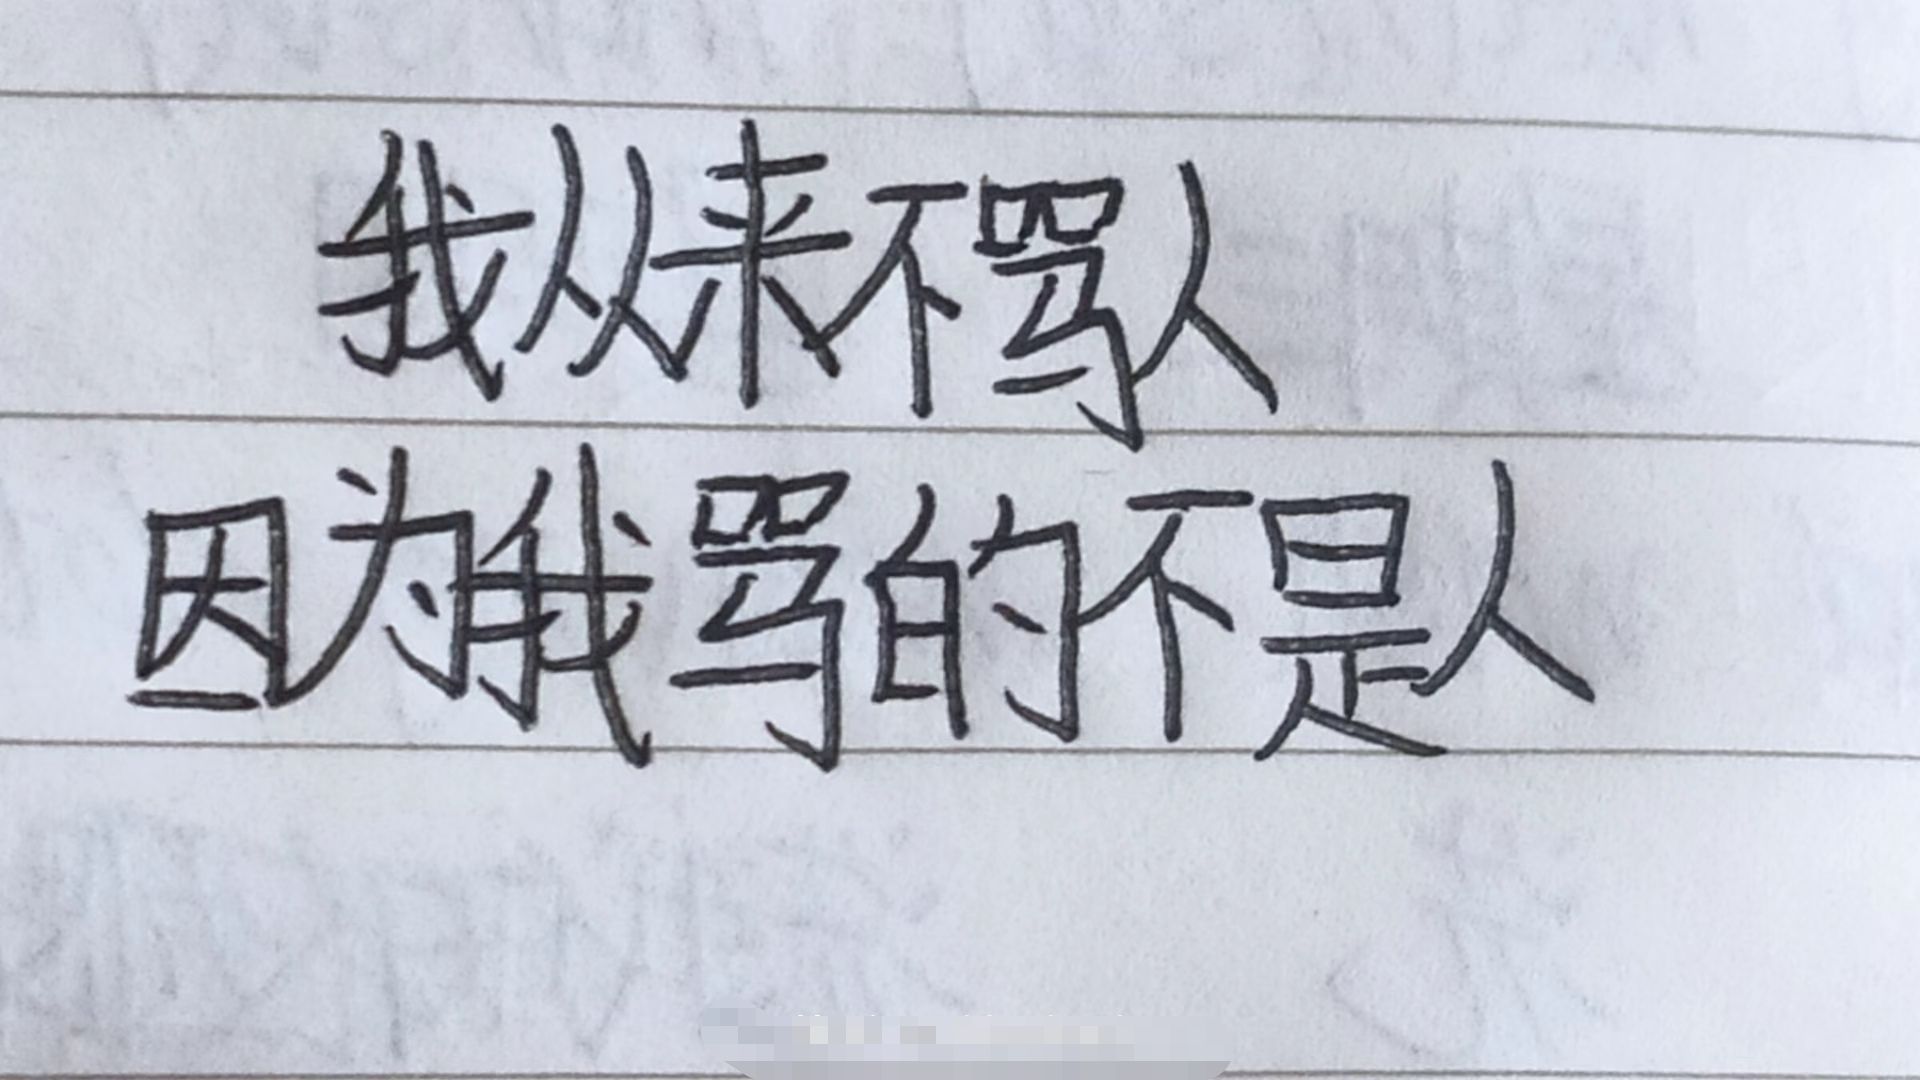 我从来不骂人
因为我骂的不是人